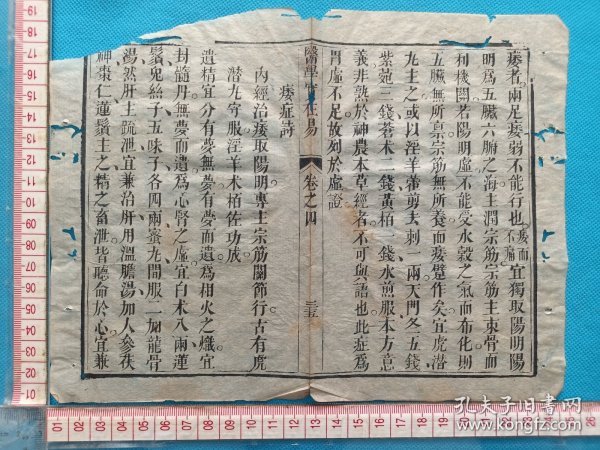 痿者兩足痿弱不能行也痿而不痛宜獨取陽明陽
明為五臟六腑之海主潤宗筋宗筋主束骨而
利機關若陽明虛不能受水穀之氣而布化則
五臟無所稟宗筋無所養而痿躄作矣宜虎潛
九主之或以淫羊藿剪去刺一兩天門冬五錢
紫菀三錢蒼朮二錢黃柏一錢水煎服本方意
義非熟於神農本草經者不可與語也此症為
胃虛不足故列於虛證
醫學實在易
卷之四
三五
痿症詩
內經治痿取陽明專主宗筋關節行古有虎
潛九寄服淫羊朮栢佐功成
遺精宜分有夢無夢有夢而遺為相火之熾宜
封髓丹無夢而遺為心腎之虛宜白朮八兩蓮
鬚兔絲子五味子各四兩蜜九間服一加龍骨
湯然肝主疏泄宜兼治肝用溫膽湯加人參茯
神棗仁蓮鬚主之精之畜泄皆聽命於心宜兼
孔夫子旧书网
www.kongfz.com